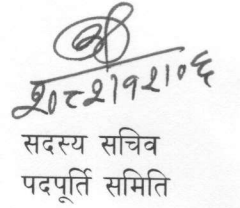 २०८२।१२।०६
सदस्य सचिव
पदपूर्ति समिति